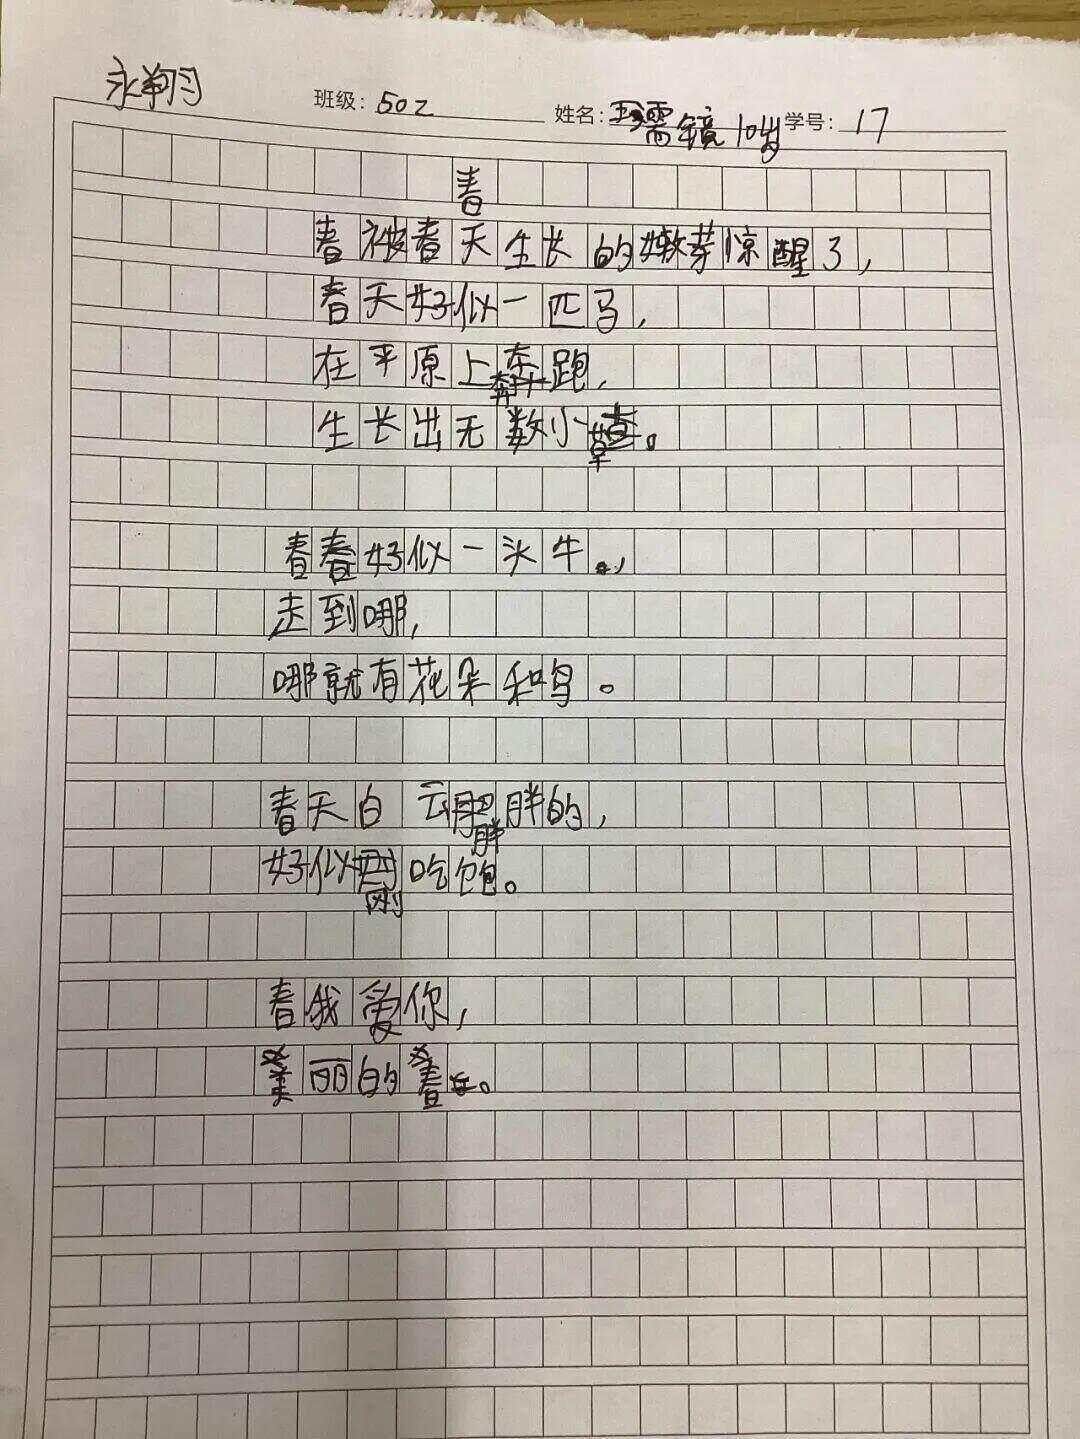 永翔 班级:502 姓名: 镜 10岁 学号:17
春
春被春天生长的嫩芽惊醒了,
春天好似一匹马,
在平原上奔跑,
生长出无数小草。
春春好似一头牛,
走到哪,
哪就有花朵和鸟。
春天白云胖胖的,
好似刚吃饱。
春我爱你,
美丽的春。